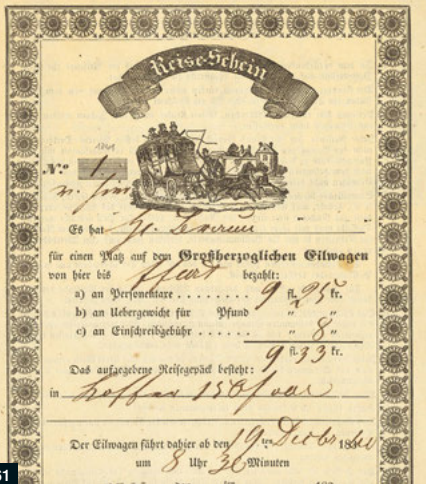 Reise-Schein
1841
N.º 1
v. hier
Es hat H.
für einen Platz auf dem Großherzoglichen Eilwagen
von hier bis bezahlt:
a) an Personentaxe . . . . . . . . 9 fl. 25 kr.
b) an Uebergewicht für Pfund „ „
c) an Einschreibgebühr . . . . . . „ 8 „
9 fl. 33 kr.
Das aufgegebene Reisegepäck besteht:
in Koffer 150
Der Eilwagen fährt dahier ab den 19 ten Decbr 184
um 8 Uhr 30 Minuten
51